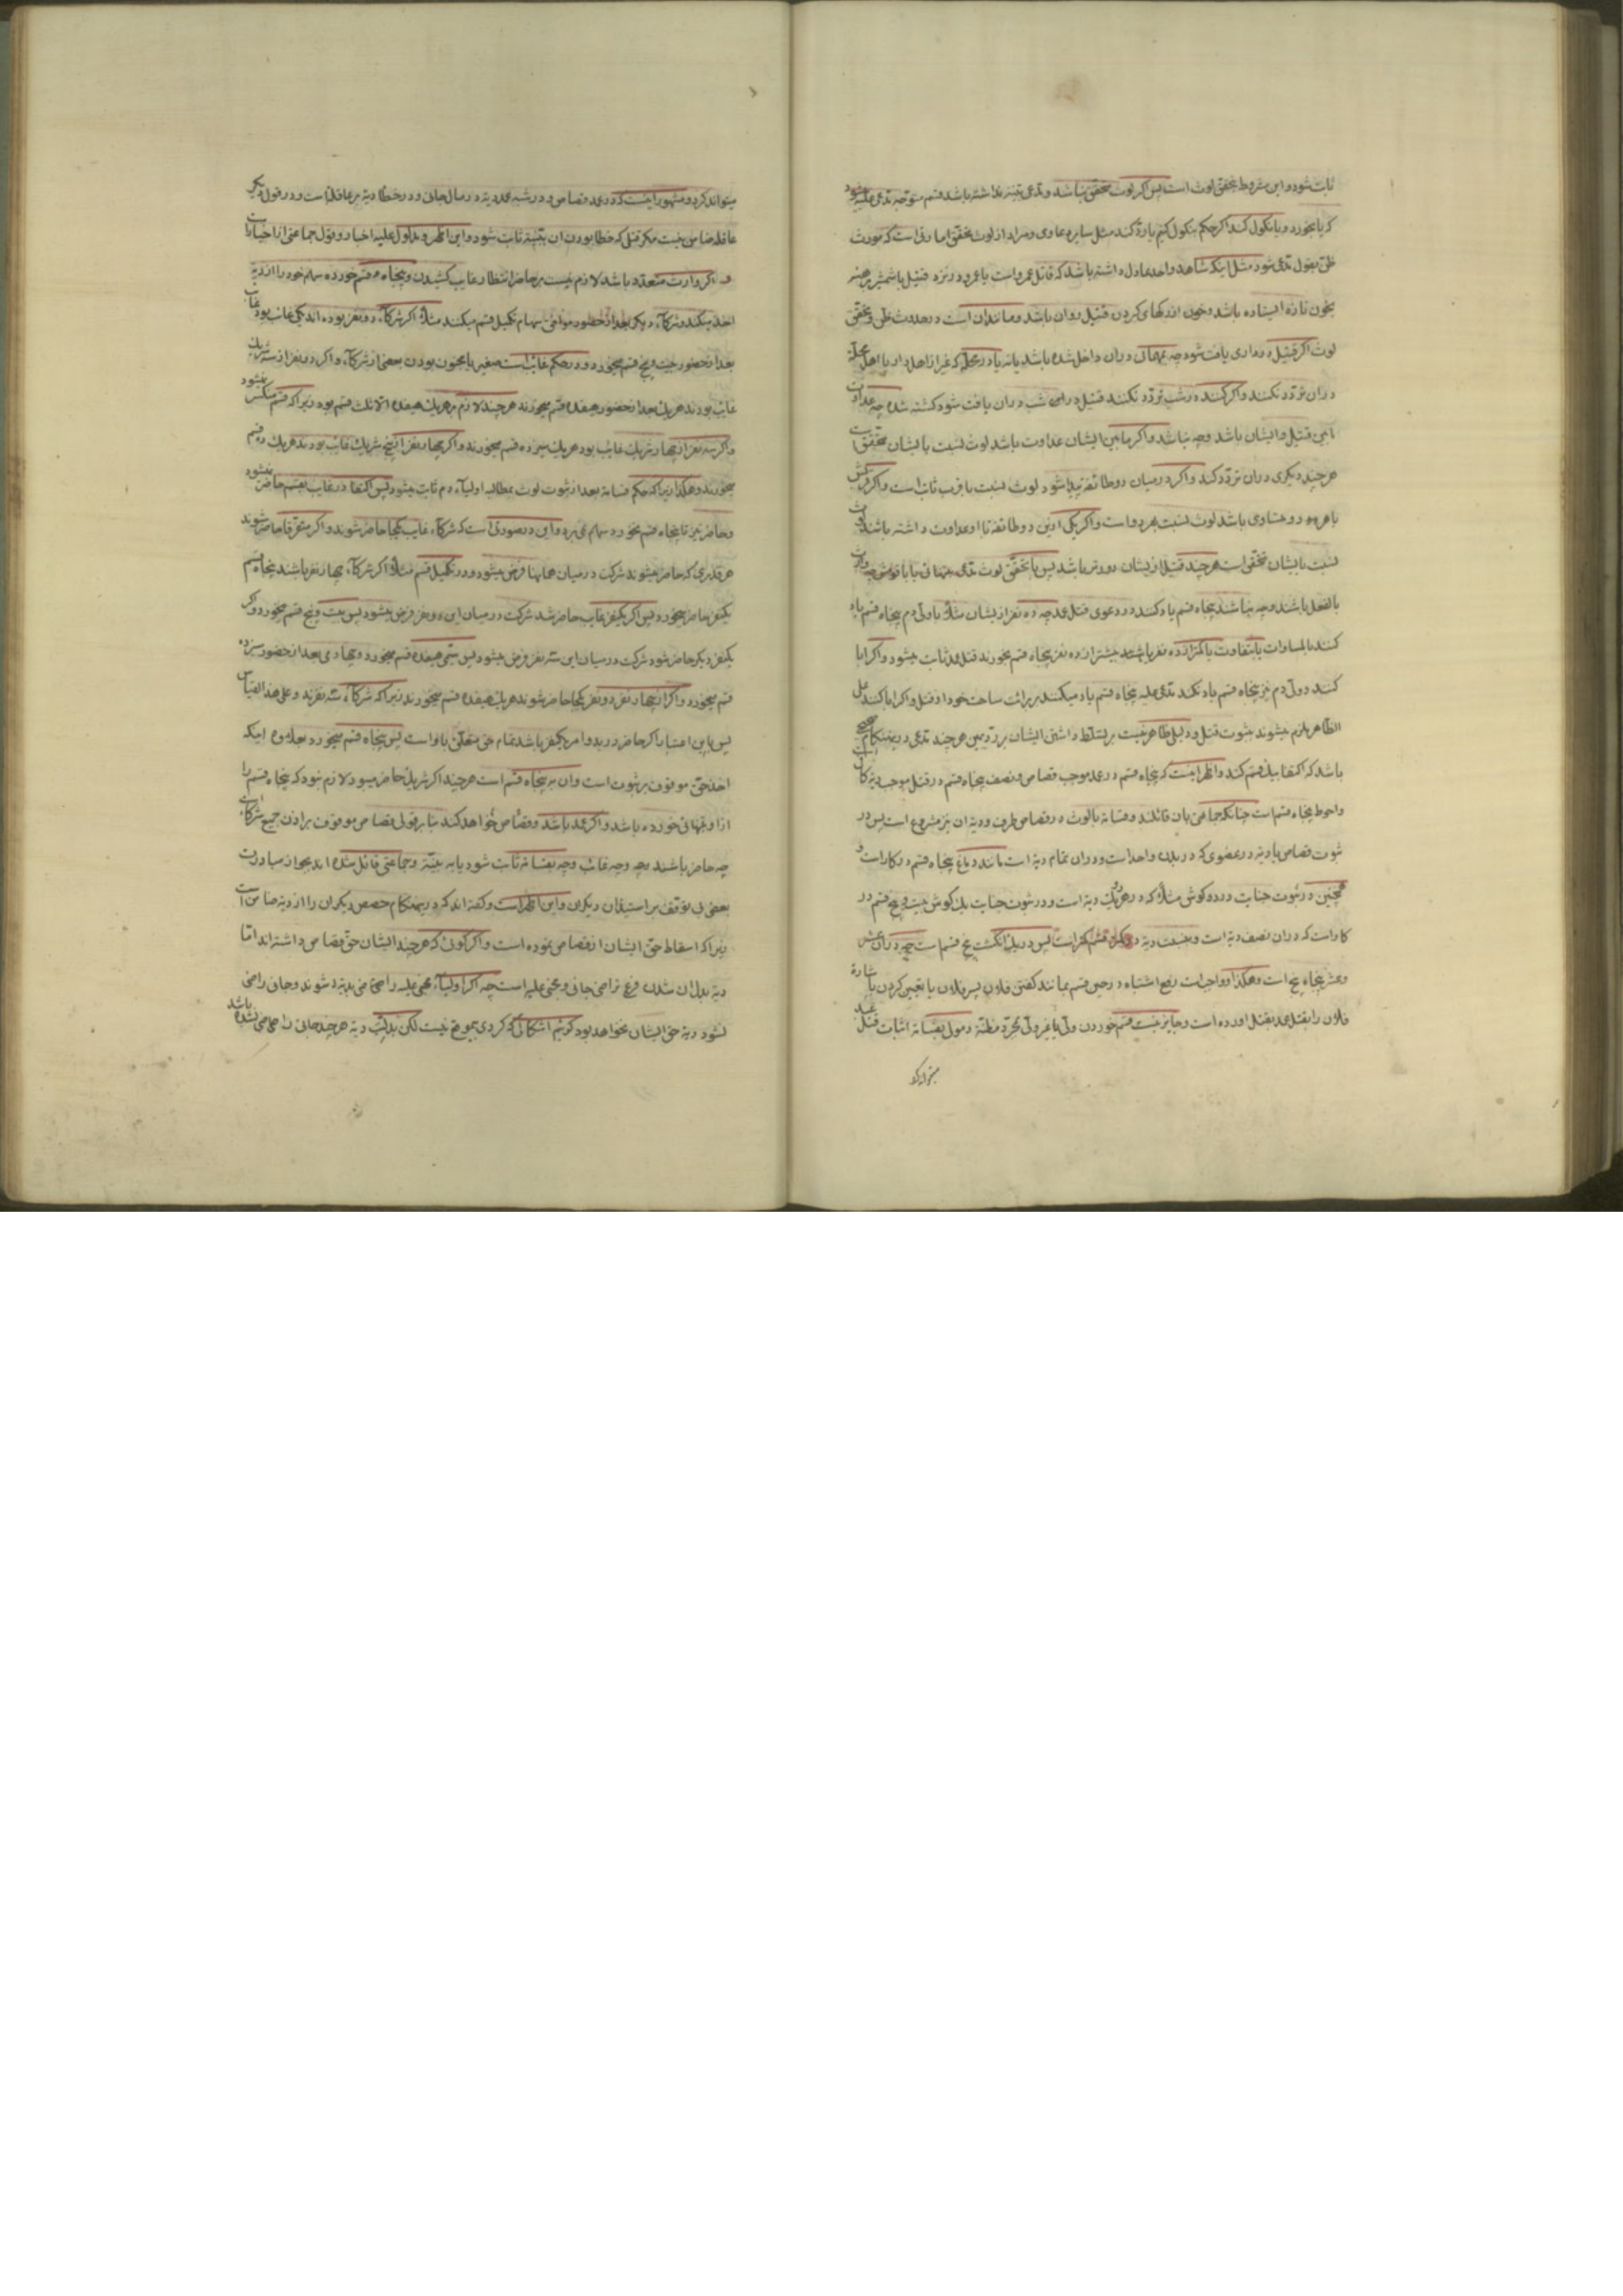 ثابت شود و این مشروط بتحقق لوث است پس اگر لوث متحقق نباشد و مدعی بینه نداشته باشد قسم متوجه مدعی علیه میشود
که یا بخورد و یا نکول کند اگر حکم بنکول کنیم یا رد کند مثل سایر دعاوی و مراد از لوث تحقق امارتی است که مورث
ظن بقول مدعی شود مثل اینکه شاهد واحد عادل داشته باشد که قاتل عمرو است یا عمرو در نزد قتیل با شمشیر برهنه
بخون تازه ایستاده باشد و خون از رکهای کردن قتیل روان باشد و مانند آن است در حدوث ظن و تحقق
لوث اگر قتیل در داری یافت شود چه تنهائی در آن داخل شده باشد یا نه یا در محله که غیر از اهل دار یا اهل محله
در آن تردد نکنند و اگر کنند در شب تردد نکنند قتیل در شب در آن یافت شود کشته شده چه عداوت
بین قتیل و ایشان باشد و چه نباشد و اگر مابین ایشان عداوت باشد لوث نسبت بایشان متحقق است
هر چند دیکری در آن تردد کند و اگر در میان دو طائفه پیدا شود لوث نسبت باقرب ثابت است و اگر
با هر دو متساوی باشد لوث نسبت بهر دو است و اگر یکی از این دو طائفه با او عداوت داشته باشند لوث
نسبت بایشان متحقق است هر چند قتیل از ایشان دورتر باشد پس با تحقق لوث مدعی بتنهائی یا با قومش چه وارث
بالفعل باشند و چه نباشند پنجاه قسم یاد کنند در دعوی قتل عمد چه ده نفر از ایشان مثلا با ولی دم پنجاه قسم یاد
کنند بالمساوات یا بتفاوت یا کمتر از ده نفر یا بیشتر از ده نفر پنجاه قسم بخورند قتل عمد ثابت میشود و اگر ابا
کنند و ولی دم نیز پنجاه قسم یاد نکند مدعی علیه پنجاه قسم یاد میکنند بر برائت ساحت خود از قتل و اگر ابا کنند علی
الظاهر ملزم میشوند بثبوت قتل و دلیلی ظاهر نیست بر تسلط داشتن ایشان بر رد یمین هر چند مدعی در این هنگام
باشد که اکتفا بیک قسم کند و اظهر اینست که پنجاه قسم در عمد موجب قصاص و نصف پنجاه قسم در قتل موجب دیه کاف
و احوط پنجاه قسم است چنانکه جماعتی بآن قائلند و قسامه با لوث در قصاص طرف و دیه آن نیز مشروع است پس در
ثبوت قصاص یا دیه در عضوی که در بدن واحد است و در آن تمام دیه است مانند دماغ پنجاه قسم در کار است و
همچنین در ثبوت جنایت در دو کوش مثلا که در هر یک دیه است و در ثبوت جنایت یک کوش بیست و پنج قسم در
کار است که در آن نصف دیه است و بنسبت دیه قسم کمتر است پس در یک انکشت پنج قسم است چه در آن عشر
و عشر پنجاه پنج است و هکذا و واجب است رفع اشتباه در حین قسم بمانند کفتن فلان پسر فلان یا تعیین کردن باشاره
فلان را بقتل عمد بقتل آورده است و جایز نیست قسم خوردن ولی یا غیر ولی بمجرد مظنه و مولی بقسامه اثبات قتل عبد
میتواند کرد و مشهور اینست که در عمد قصاص و در شبه عمد دیه در مال جانی و در خطا دیه بر عاقله است و در قول دیکر
عاقله ضامن نیست مکر قتل که خطا بودن آن ببینه ثابت شود و این اظهر و مدلول علیه اخبار و قول جماعتی از اخیار است
و اکر وارث متعدد باشد لازم نیست بر حاضر انتظار غایب کشیدن و پنجاه قسم خورده سهام خود را از دیه
اخذ میکند و شرکاء دیکر بعد از حضور موافق سهام تکمیل قسم میکنند مثلا اکر شرکاء دو نفر بوده اند یکی غایب بود غایب
بعد از حضور بیست و پنج قسم میخورد و در حکم غایب است صغیر یا مجنون بودن بعضی از شرکاء و اکر دو نفر از سه شریک
غایب بودند هر یک بعد از حضور هیفده قسم میخورند هر چند لازم بر هر یک هیفده الا ثلث قسم بود زیرا که قسم منکسر نمیشود
و اکر سه نفر از چهار شریک غایب بود هر یک سیزده قسم میخورند و اکر چهار نفر از پنج شریک غایب بودند هر یک ده قسم
میخورند و هکذا زیرا که حکم قسامه بعد از ثبوت لوث بمطالبه اولیاء دم ثابت میشود پس اکتفا در غایب بقسم حاضر نمیشود
و حاضر نیز تا پنجاه قسم نخورد سهام نمی برد و این در صورتی است که شرکاء غایب یکجا حاضر شوند و اکر متفرقا حاضر شوند
هر قدری که حاضر میشوند شرکت در میان همانها فرض میشود و در تکمیل قسم مثلا اکر شرکاء چهار نفر باشند پنجاه قسم
یکنفر حاضر میخورد پس اکر یکنفر غایب حاضر شد شرکت در میان این دو نفر فرض میشود پس بیست و پنج قسم میخورد و اکر
یکنفر دیکر حاضر شود شرکت در میان این سه نفر فرض میشود پس سیمی هیفده قسم میخورد و چهارمی بعد از حضور سیزده
قسم میخورد و اکر از چهار نفر دو نفر یکجا حاضر شوند هر یک هیفده قسم میخورند زیرا که شرکاء سه نفرند و علی هذا القیاس
پس باین اعتبار اکر حاضر در بدو امر یکنفر باشد تمام حق متعلق باو است پس پنجاه قسم میخورد بعلاوه اینکه
اخذ حق موقوف بر ثبوت است و آن بر پنجاه قسم است هر چند اکر شریک حاضر میبود لازم نبود که پنجاه قسم را
از او تنهائی خورده باشد و اکر عمد باشد و قصاص خواهد کند بنابر قولی قصاص موقوف بر اذن جمیع شرکا است
چه حاضر باشند و چه غایب و چه بقسامه ثابت شود یا به بینه و جماعتی قائل شده اند بجواز مبادرت
بعضی بی توقف بر استیذان دیکران و این اظهر است و کفته اند که در این هنکام حصص دیکران را از دیه ضامن است
زیرا که اسقاط حق ایشان از قصاص نموده است و اکر کوئی که هر چند ایشان حق قصاص داشته اند اما
دیه بدل آن شدن فرع تراضی جانی و مجنی علیه است چه اکر اولیاء مجنی علیه راضی بدیه شوند و جانی راضی
نشود دیه حق ایشان نخواهد بود کوئیم اشکالی که کردی بی موقع نیست لکن بدلیت دیه هر چند جانی راضی نشده باشد